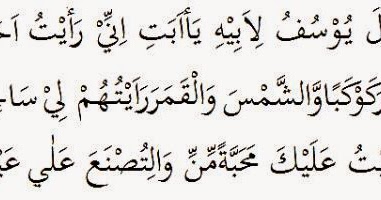 يُوْسُفُ لِاَبِيْهِ يَاأَبَتِ اِنِّيْ رَأَيْتُ
كَوْكَبًاوَّالشَّمْسَ وَالْقَمَرَرَاَيْتُهُمْ لِيْ
عَلَيْكَ مَحَبَّةًمِّنِّ وَالِتُصْنَعَ عَلٰي